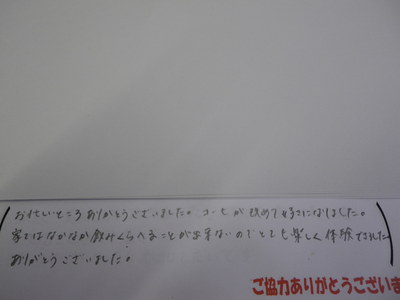 お忙しいところありがとうございました。コーヒーが改めて好きになりました。
家ではなかなか飲みくらべることが出来ないのでとても楽しく体験できました
ありがとうございました。
ご協力ありがとうございま